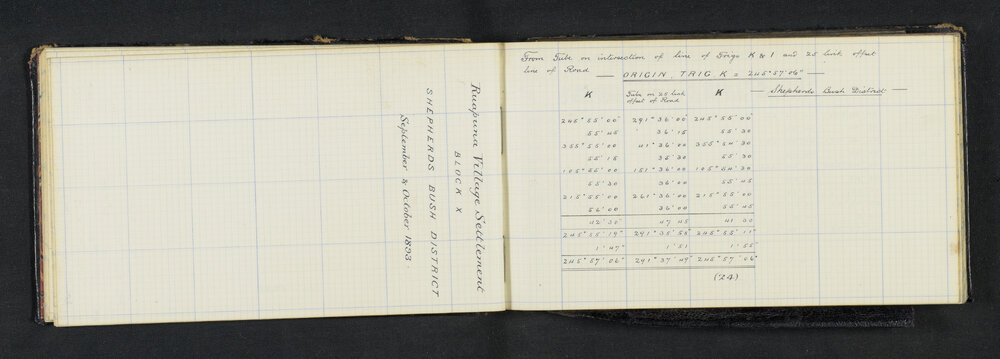 Ruapuna Village Settlement
BLOCK X
SHEPHERDS BUSH DISTRICT
September & October 1893.
From Tube on intersection of line of Trigs K & I and 25 link offset
line of Road — ORIGIN TRIG K = 245° 57' 06" —
K Tube on 25 link K — Shepherds Bush District —
offset of Road
245° 55' 00" 291° 36' 00" 245° 55' 00"
55' 45 36' 15 55' 30
355° 55' 00 41° 36' 00 355° 54' 30
55' 15 35' 30 55' 30
105° 55' 00 151° 36' 00 105° 54' 30
55' 30 36' 00 55' 45
215° 55' 00 261° 36' 00 215° 55' 00
56' 00 36' 00 55' 45
42' 30" 47' 45 41' 30
245° 55' 19" 291° 35' 58" 245° 55' 11"
1' 47" 1' 51 1' 55"
245° 57' 06" 291° 37' 49" 245° 57' 06"
(24)